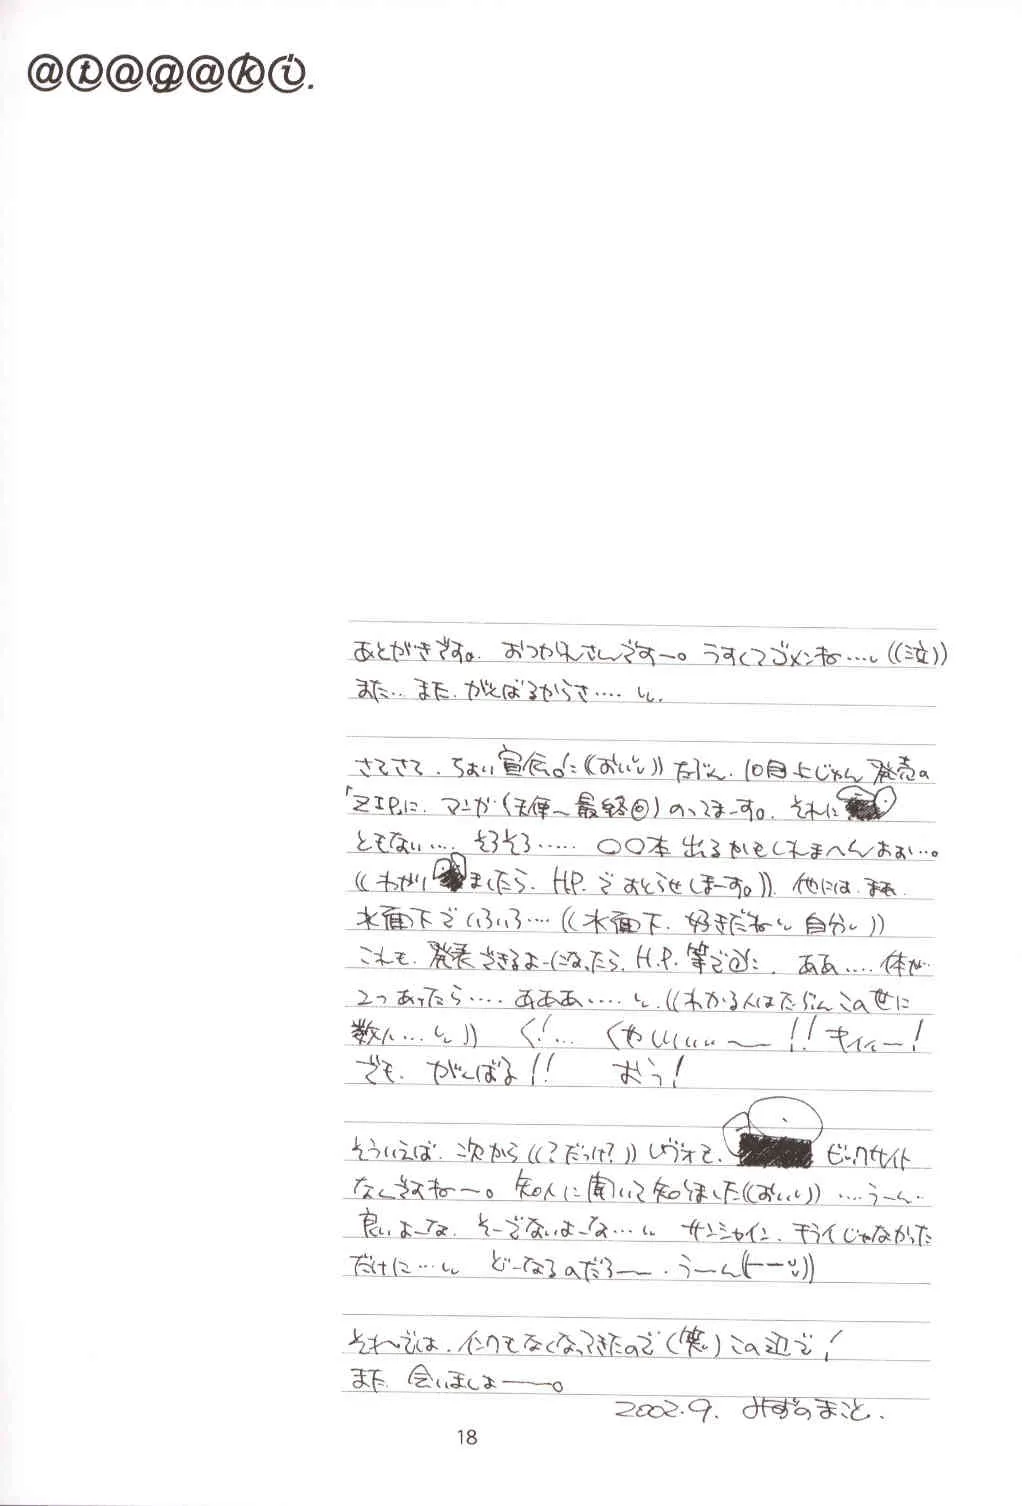 @t@g@ki.
あとがきです。おつかれさんですー。うすくてゴメンね…。((泣))
また…また、がんばるからさ…。
さてさて、ちょい宣伝。((おいし))たぶん、10月上じゅん発売の
「ZIP」に、マンガ(天使〜最終回)のってまーす。それに
ともない…、そろそろ……〇〇本出るかもしれまへんおぉ…。
((わかりましたら、H.P.でおしらせしまーす。))他には、まぁ、
水面下でいろいろ…((水面下、好きだねい自分い))
これも、発表できるよーになったら、H.P.等で
ああ…体が…
2つあったら……あああ……((わかる人はたぶんこの世に
数人…))く!…くやしいぃぃ〜ー!!キィィー!
でも、がんばる!!おう!
そういえば、次から((?だっけ?))レヴォて、ビックサイト
なんですよねー。知人に聞いて知りました((おいし))…うーん…
良いよーな、そーでないよーな…サンシャイン、キライじゃなかった
だけに…どーなるのだろー。うーん
それでは、インクもなくなってきたので(笑)この辺で!
また、会いましょーー。
2002.9. みずのまこと.
18